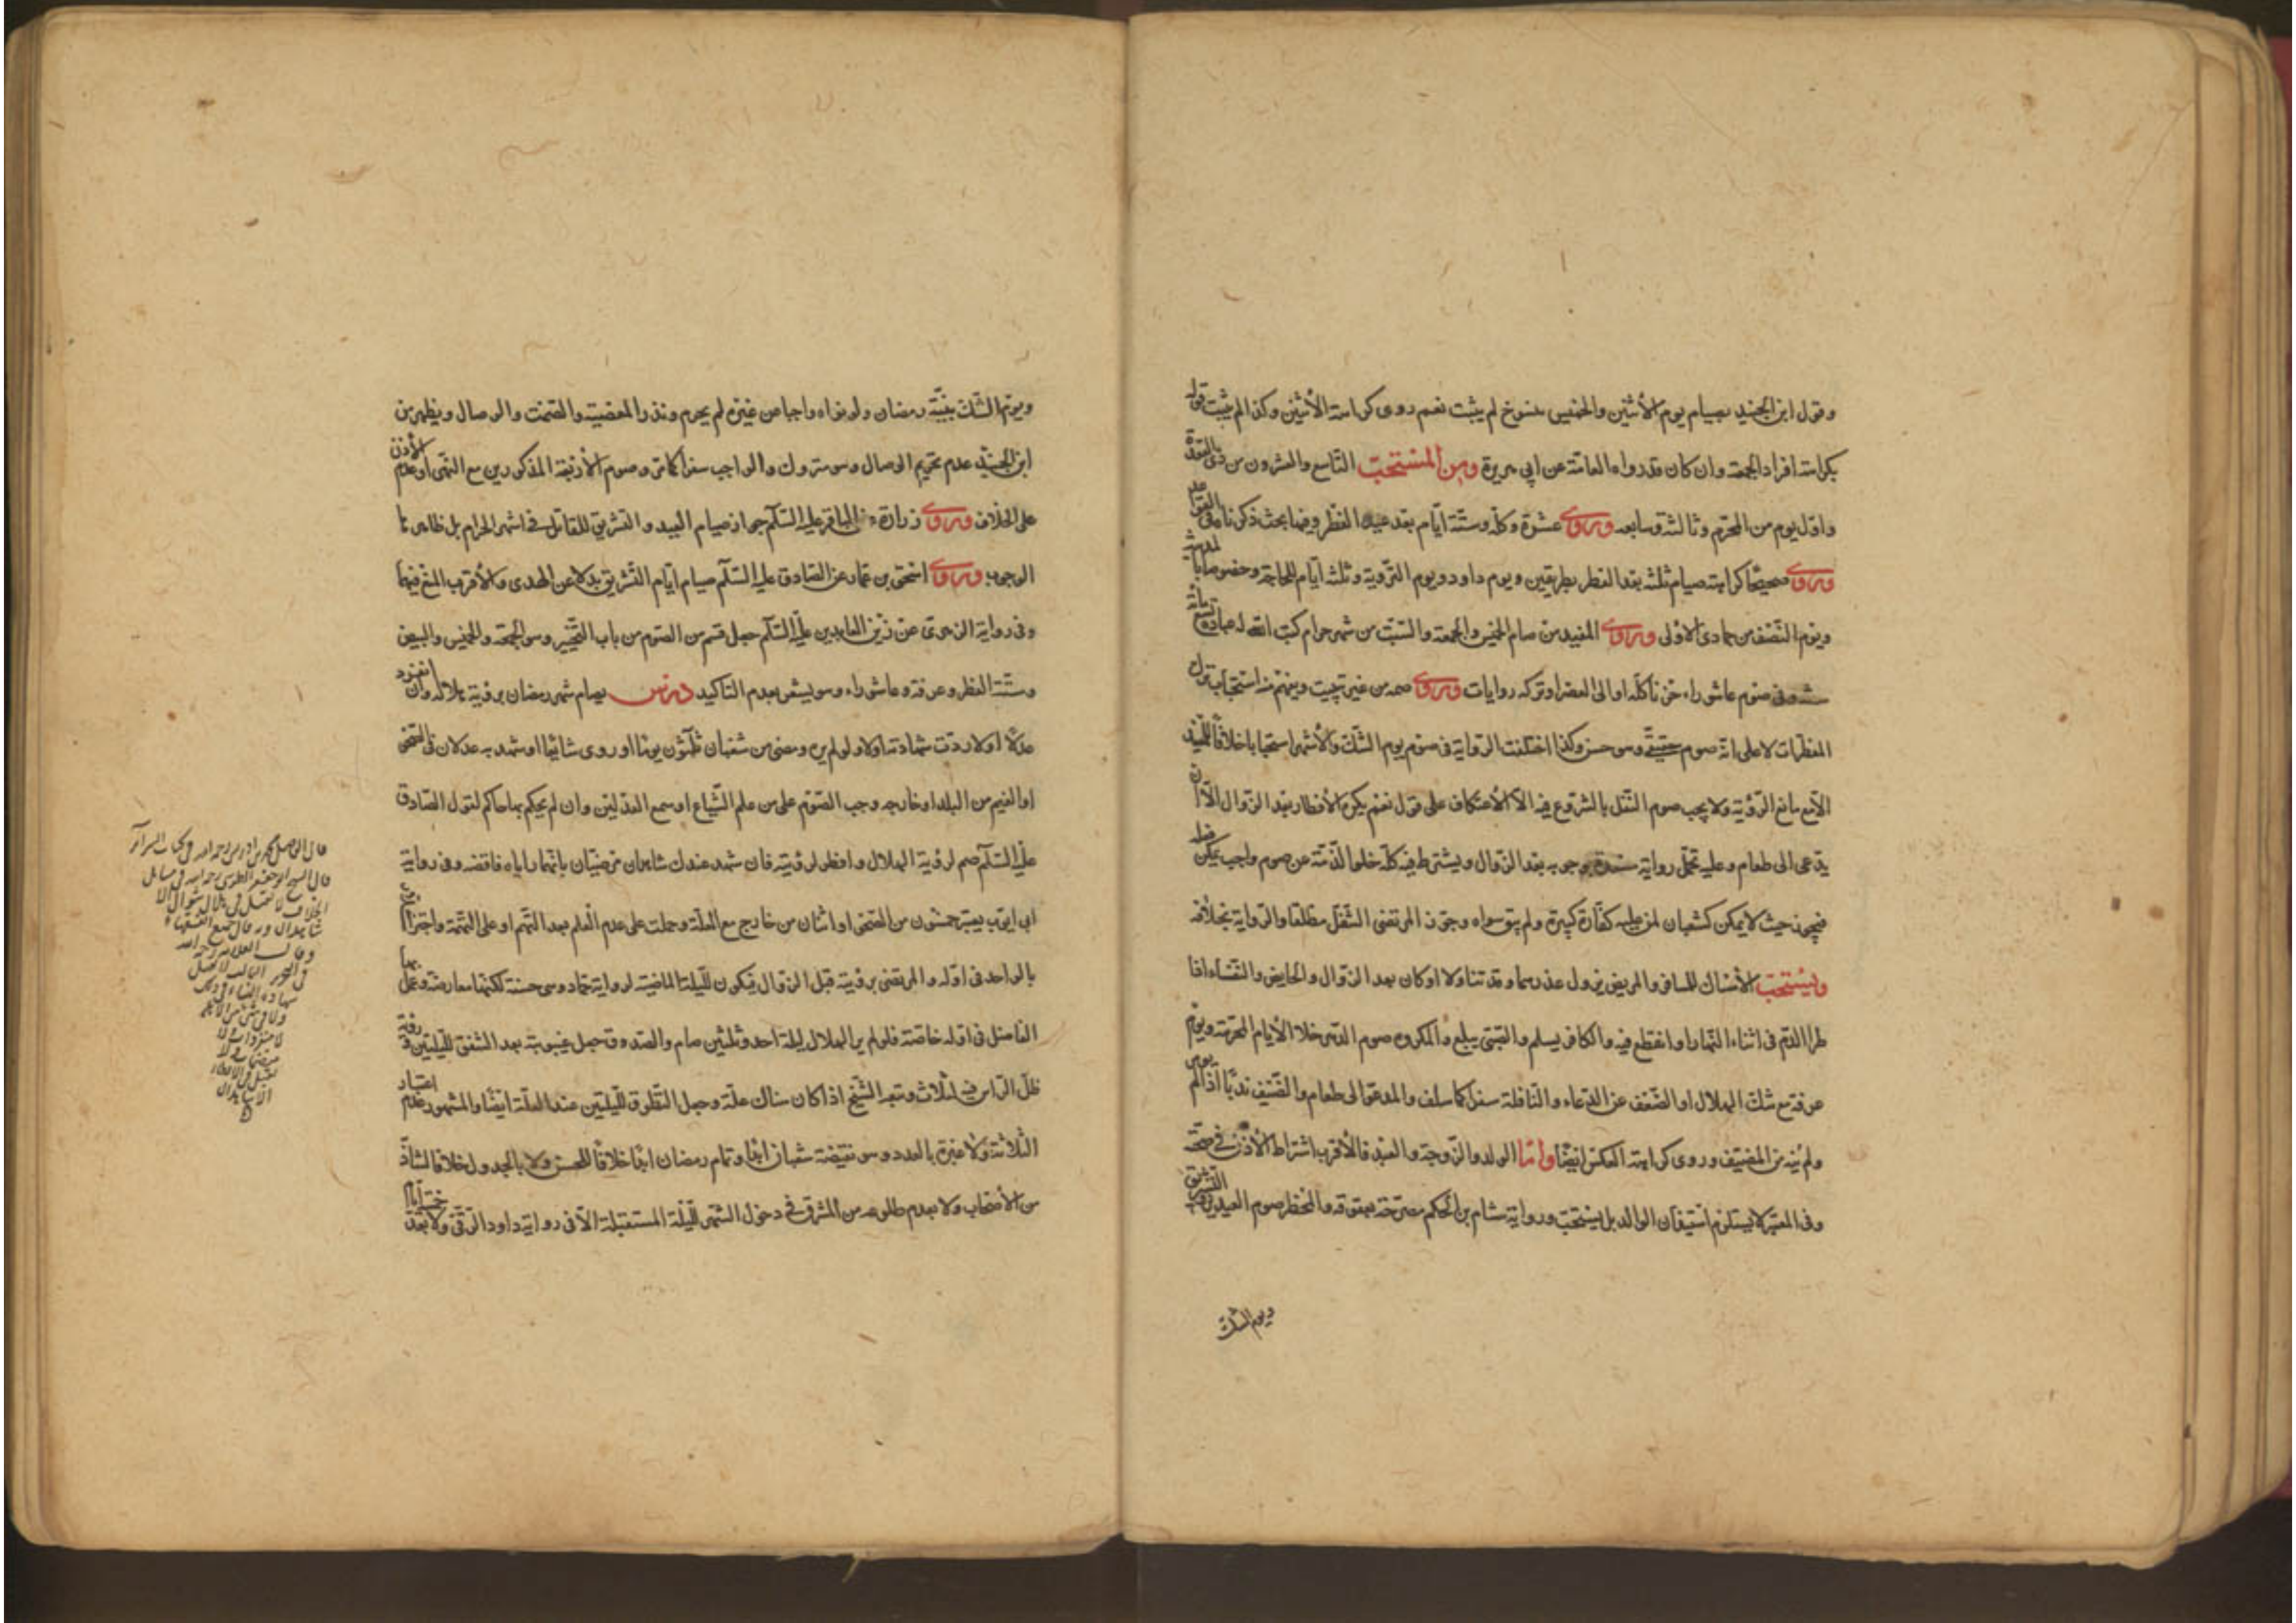 وقول ابن الجنيد بصيام يوم الاثنين والخميس منسوخ لم يثبت نعم روى كراهة الاثنين وكذا لم يثبت قوله
بكراهة افراد الجمعة وان كان قد رواه العامة عن ابي هريرة ومن المستحب التاسع والعشرون من ذي القعدة
واول يوم من المحرم وثالثه وسابعه وروى عشره وكله وستة ايام بعد عيد الفطر وفيها بحث ذكرناه في القواعد
وروى صحيحا كراهة صيام ثلثة بعد الفطر بطريقين ويوم داود ويوم التروية وثلثة ايام للحاجة وخصوصا بالمدينة
ويوم النصف من جمادى الاولى وروى المفيد من صام الخميس والجمعة والسبت من شهر حرام كتب الله له عبادة تسعمائة
سنة وفي صوم عاشوراء حزنا كله او الى العصر او تركه روايات وروى صمه من غير تبييت ويفهم منه استحباب ترك
المفطرات لا على انه صوم حقيقي وهو حسن وكذا اختلفت الرواية في صوم يوم الشك والاشهر استحبابا خلافا للمفيد
الا مع مانع الرؤية ولا يجب صوم النفل بالشروع فيه الا الاعتكاف على قول نعم يكره الافطار بعد الزوال الا ان
يدعى الى طعام وعليه تحمل رواية مسعدة بوجوبه بعد الزوال ويشترط فيه كله خلو الذمة عن صوم واجب يمكن فعله
فيجوز حيث لا يمكن كشعبان لمن عليه كفارة كبيرة ولم يبق سواه وجوز المرتضى التنفل مطلقا والرواية بخلافه
ويستحب الامساك للمسافر والمريض بزول عذرهما وقد تناولا او كان بعد الزوال والحايض والنفساء اذا
طرا الدم في اثناء النهار او انقطع فيه والكافر يسلم والصبي يبلغ والمكروه صوم الدهر خلا الايام المحرمة ويوم
عرفة مع شك الهلال او الضعف عن الدعاء والنافلة سفرا كما سلف والمدعو الى طعام والضيف ندبا اذا لم يومر
ولم ينه من المضيف وروى كراهة العكس ايضا واما الولد والزوجة والعبد فالاقرب اشتراط الاذن في صحته
وفي المعتبر لا يستلزم استيذان الوالد بل يستحب ورواية هشام بن الحكم مصرحة بعقوقه والحظر صوم العيدين والتشريق
ويوم الشك
ويوم الشك بنية رمضان ولو نواه واجبا من غيره لم يحرم ونذر المعصية والصمت والوصال ويظهر من
ابن الجنيد عدم تحريم الوصال وهو متروك والواجب سفرا كما مر وصوم الاربعة المذكورين مع النهي او عدم الاذن
على الخلاف وروى زرارة عن الباقر عليه السلام جواز صيام العيد والتشريق للقاتل في اشهر الحرام بل ظاهرها
الوجوب وروى اسحق بن عمار عن الصادق عليه السلام صيام ايام التشريق بدلا عن الهدى والاقرب المنع فيهما
وفي رواية الزهري عن زين العابدين عليه السلام جعل قسم من الصوم من باب التخيير وهو الجمعة والخميس والبيض
وستة الفطر وعرفة وعاشوراء وهو يشعر بعدم التاكيد درس يصام شهر رمضان برؤية هلاله وان انفرد
عدلا او لا ردت شهادته او لا ولو لم يره ومضى من شعبان ثلثون يوما او روى شايعا او شهد به عدلان في الصحو
او الغيم من البلد او خارجه وجب الصوم على من علم الشياع او سمع العدلين وان لم يحكم بهما حاكم لقول الصادق
عليه السلام صم لرؤية الهلال وافطر لرؤيته فان شهد عندك شاهدان مرضيان بانهما راياه فاقضه وفي رواية
ابي ايوب يعتبر خمسون من الصحو او اثنان من خارج مع العلة وحملت على عدم العلم بعدالتهم او على التهمة واجتزأ
بالواحد في اوله والمرتضى برؤيته قبل الزوال فيكون لليلة الماضية لرواية حماد وهي حسنة لكنها معارضة وعمل بها
الفاضل في اوله خاصة فلو لم ير الهلال ليلة احد وثلثين صام والصدوق جعل غيبوبته بعد الشفق لليلتين ورؤية
ظل الراس فيه لثلاث وتبعه الشيخ اذا كان هناك علة وجعل التطوق لليلتين عند العلة ايضا والمشهور عدم اعتبار
الثلاثة ولا عبرة بالعدد وهو نقيصة شعبان ابدا وتمام رمضان ابدا خلافا للحسن ولا بالجدول خلافا لشاذ
من الاصحاب ولا بعدم طلوعه من المشرق في دخول الشهر لليلة المستقبلة الا في رواية داود الرقي ولا بعد خمسة ايام
قال الفاضل محمد بن ادريس رحمه الله في كتاب السرائر
قال الشيخ ابو جعفر الطوسي رحمه الله في مسائل
الخلاف لا تقبل في هلال شوال الا
شاهدان وبه قال جميع الفقهاء
وقال العلامة رحمه الله